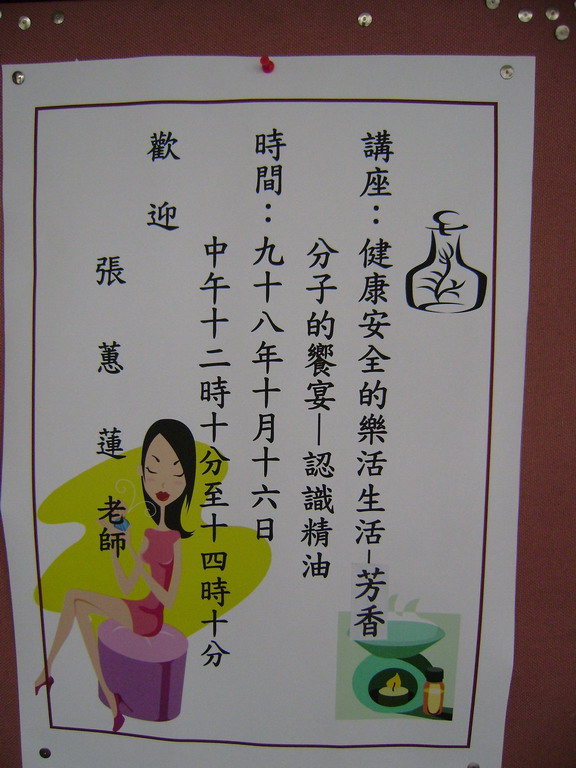 講座：健康安全的樂活生活–芳香
分子的饗宴–認識精油
時間：九十八年十月十六日
中午十二時十分至十四時十分
歡迎
張蕙蓮老師